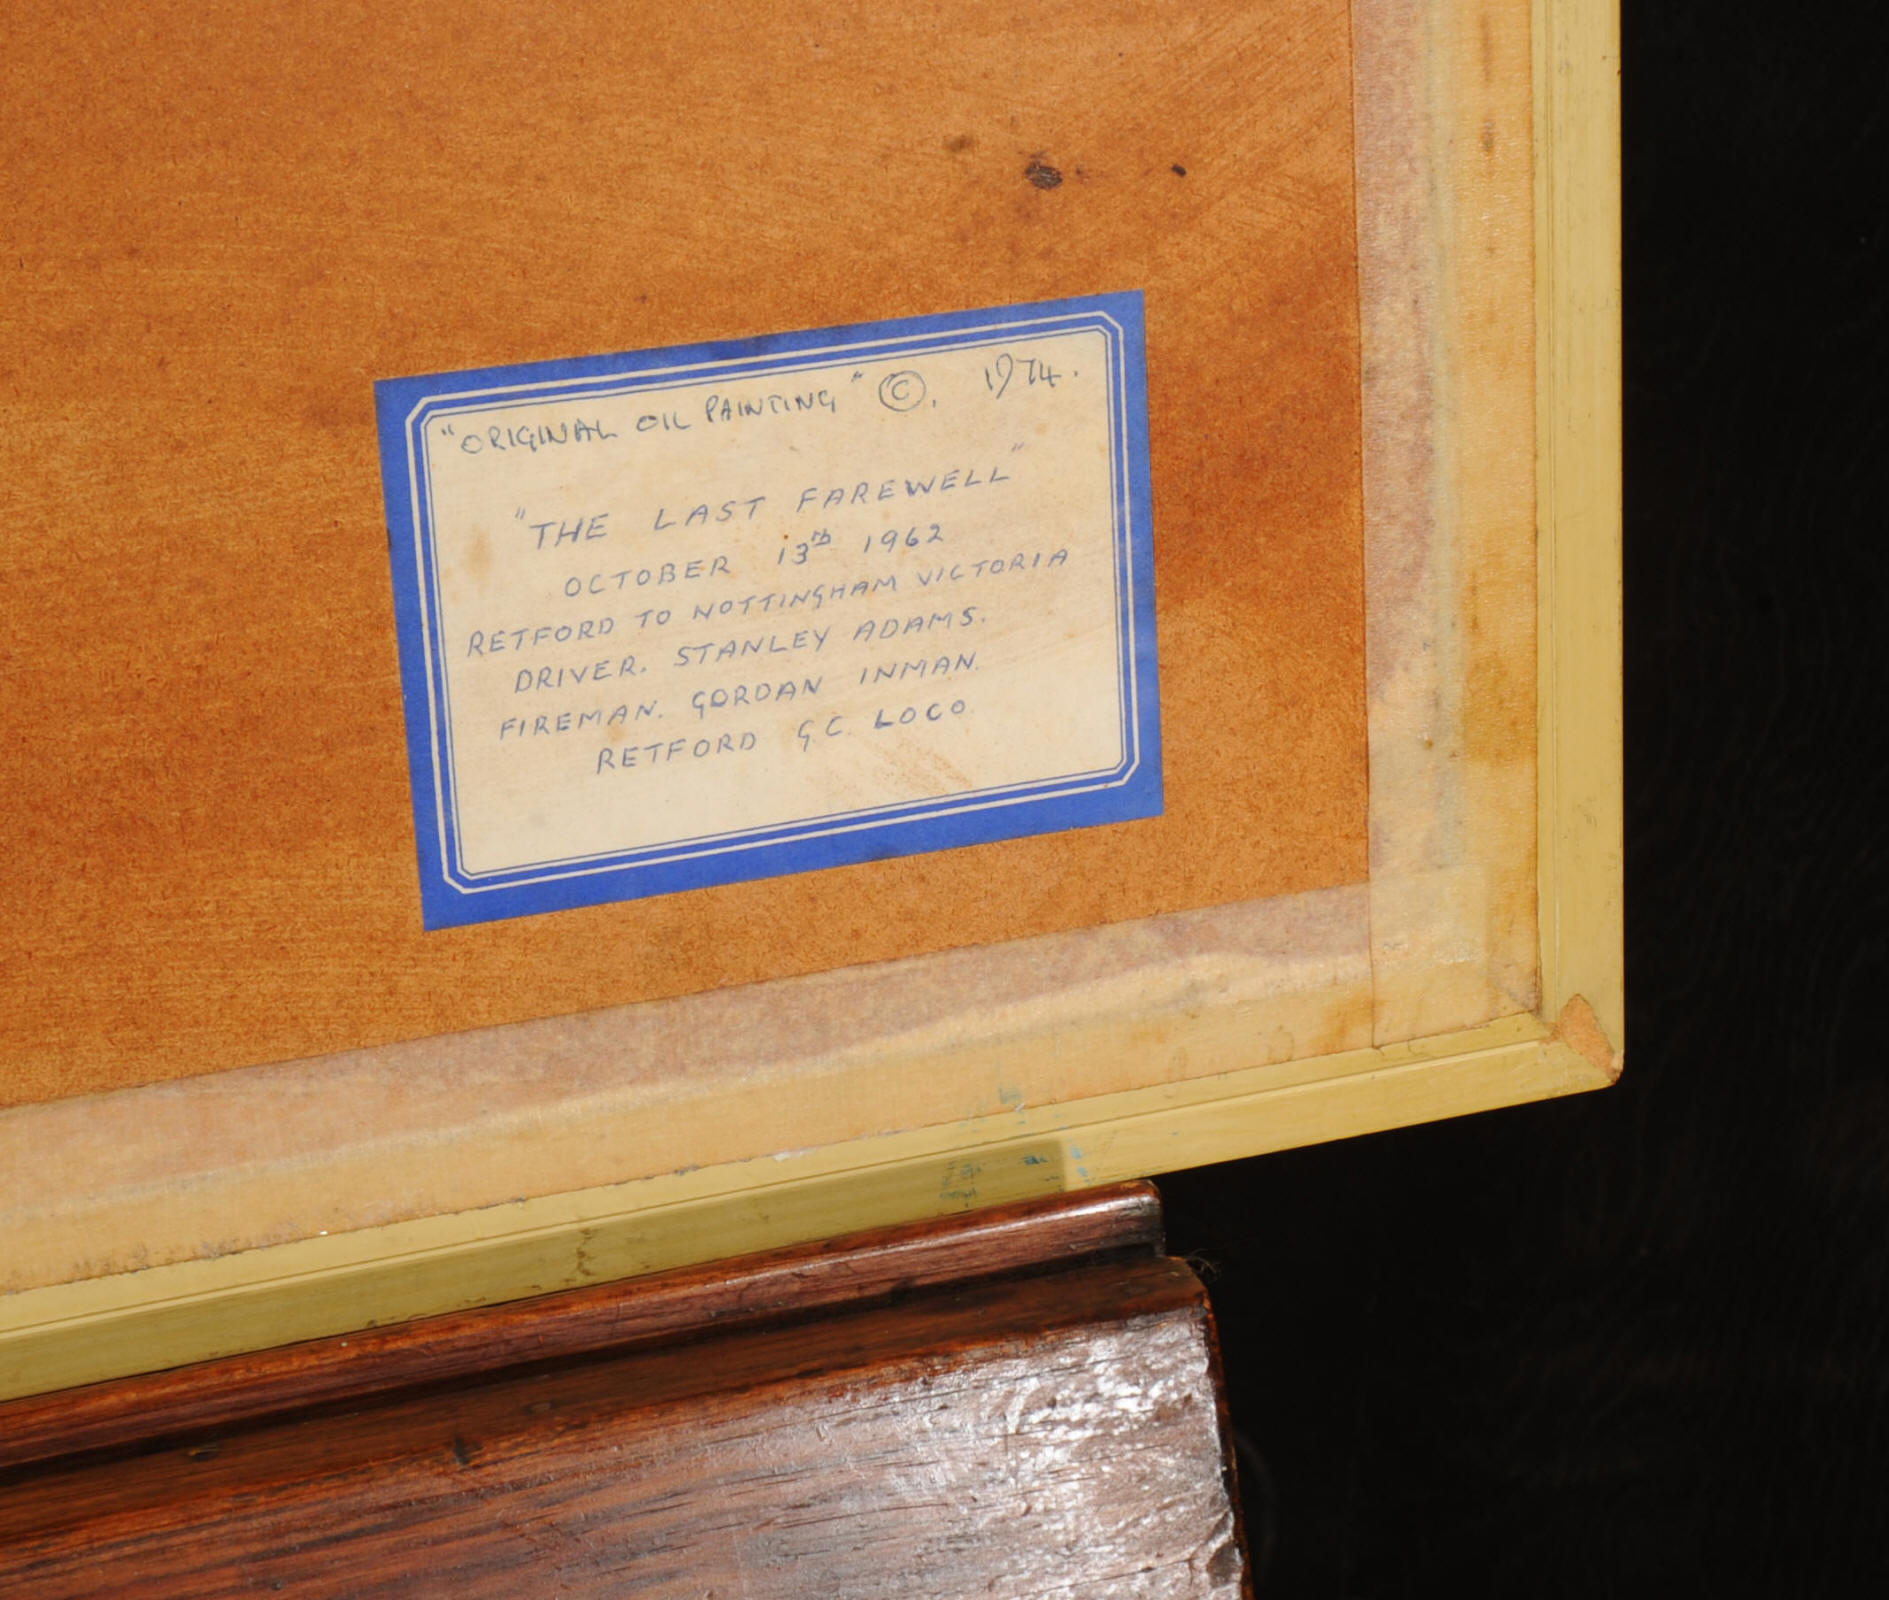 "ORIGINAL OIL PAINTING" ©. 1974.
"THE LAST FAREWELL"
OCTOBER 13th 1962
RETFORD TO NOTTINGHAM VICTORIA
DRIVER. STANLEY ADAMS.
FIREMAN. GORDAN INMAN.
RETFORD GC. LOCO.